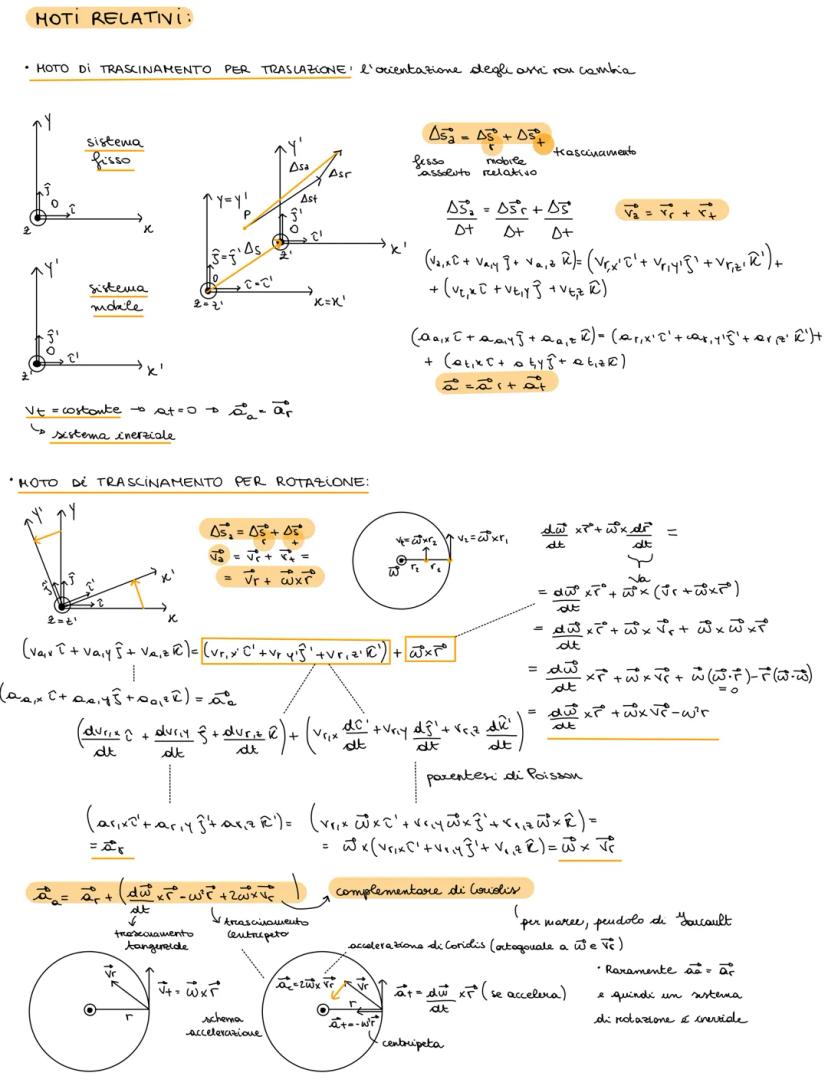 MOTI RELATIVI:
• MOTO DI TRASCINAMENTO PER TRASLAZIONE: l'orientazione degli assi non cambia
y
sistema
fisso
ĵ
O
î
z
x
y'
sistema
mobile
ĵ'
O
î'
z'
x'
y'
Δsa
Δsr
Δst
y=y'
P
ĵ'
O
î'
z'
x'
ĵ=ĵ'
Δs
O
î=î'
z=z'
x=x'
Δs⃗a = Δs⃗r + Δs⃗t
trascinamento
fisso mobile
assoluto relativo
Δs⃗a/Δt = Δs⃗r/Δt + Δs⃗/Δt
v⃗a = v⃗r + v⃗t
(va,x î + va,y ĵ + va,z k̂) = (vr,x' î' + vr,y' ĵ' + vr,z' k̂') +
+ (vt,x î + vt,y ĵ + vt,z k̂)
(aa,x î + aa,y ĵ + aa,z k̂) = (ar,x' î' + ar,y' ĵ' + ar,z' k̂') +
+ (at,x î + at,y ĵ + at,z k̂)
a⃗ = a⃗r + a⃗t
vt = costante → at=0 → a⃗a = a⃗r
↳ sistema inerziale
• MOTO DI TRASCINAMENTO PER ROTAZIONE:
y'
y
x'
ĵ'
ĵ
î'
î
z=z'
x
Δs⃗a = Δs⃗r + Δs⃗t
v⃗a = v⃗r + v⃗t =
= v⃗r + ω⃗×r⃗
vt=ω⃗×r2
v2=ω⃗×r1
ω⃗
r2
r1
dω⃗/dt ×r⃗ + ω⃗× dr⃗/dt =
va
= dω⃗/dt ×r⃗ + ω⃗× (v⃗r + ω⃗×r⃗)
= dω⃗/dt ×r⃗ + ω⃗× v⃗r + ω⃗×ω⃗×r⃗
= dω⃗/dt ×r⃗ + ω⃗×v⃗r + ω⃗(ω⃗·r⃗) - r⃗(ω⃗·ω⃗)
=0
= dω⃗/dt ×r⃗ + ω⃗×v⃗r - ω²r
(va,x î + va,y ĵ + va,z k̂) = (vr,x' î' + vr,y' ĵ' + vr,z' k̂') + ω⃗×r⃗
(aa,x î + aa,y ĵ + aa,z k̂) = a⃗a
(dvr,x/dt î + dvr,y/dt ĵ + dvr,z/dt k̂) + (vr,x dî'/dt + vr,y dĵ'/dt + vr,z dk̂'/dt)
parentesi di Poisson
(ar,x î' + ar,y ĵ' + ar,z k̂') = (vr,x ω⃗×î' + vr,y ω⃗×ĵ' + vr,z ω⃗×k̂) =
= a⃗r = ω⃗×(vr,x î' + vr,y ĵ' + vr,z k̂') = ω⃗ × v⃗r
a⃗a = a⃗r + (dω⃗/dt ×r⃗ - ω²r⃗ + 2ω⃗×v⃗r) → complementare di Coriolis
trascinamento
tangenziale
trascinamento
centripeto
per maree, pendolo di Foucault
accelerazione di Coriolis (ortogonale a ω⃗ e v⃗r)
v⃗r
v⃗t = ω⃗×r⃗
r
schema
accelerazione
a⃗c=2ω⃗×v⃗r
v⃗r
r
a⃗t=-ω²r⃗
centripeta
a⃗t = dω⃗/dt ×r⃗ (se accelera)
• Raramente a⃗a = a⃗r
e quindi un sistema
di rotazione è inerziale